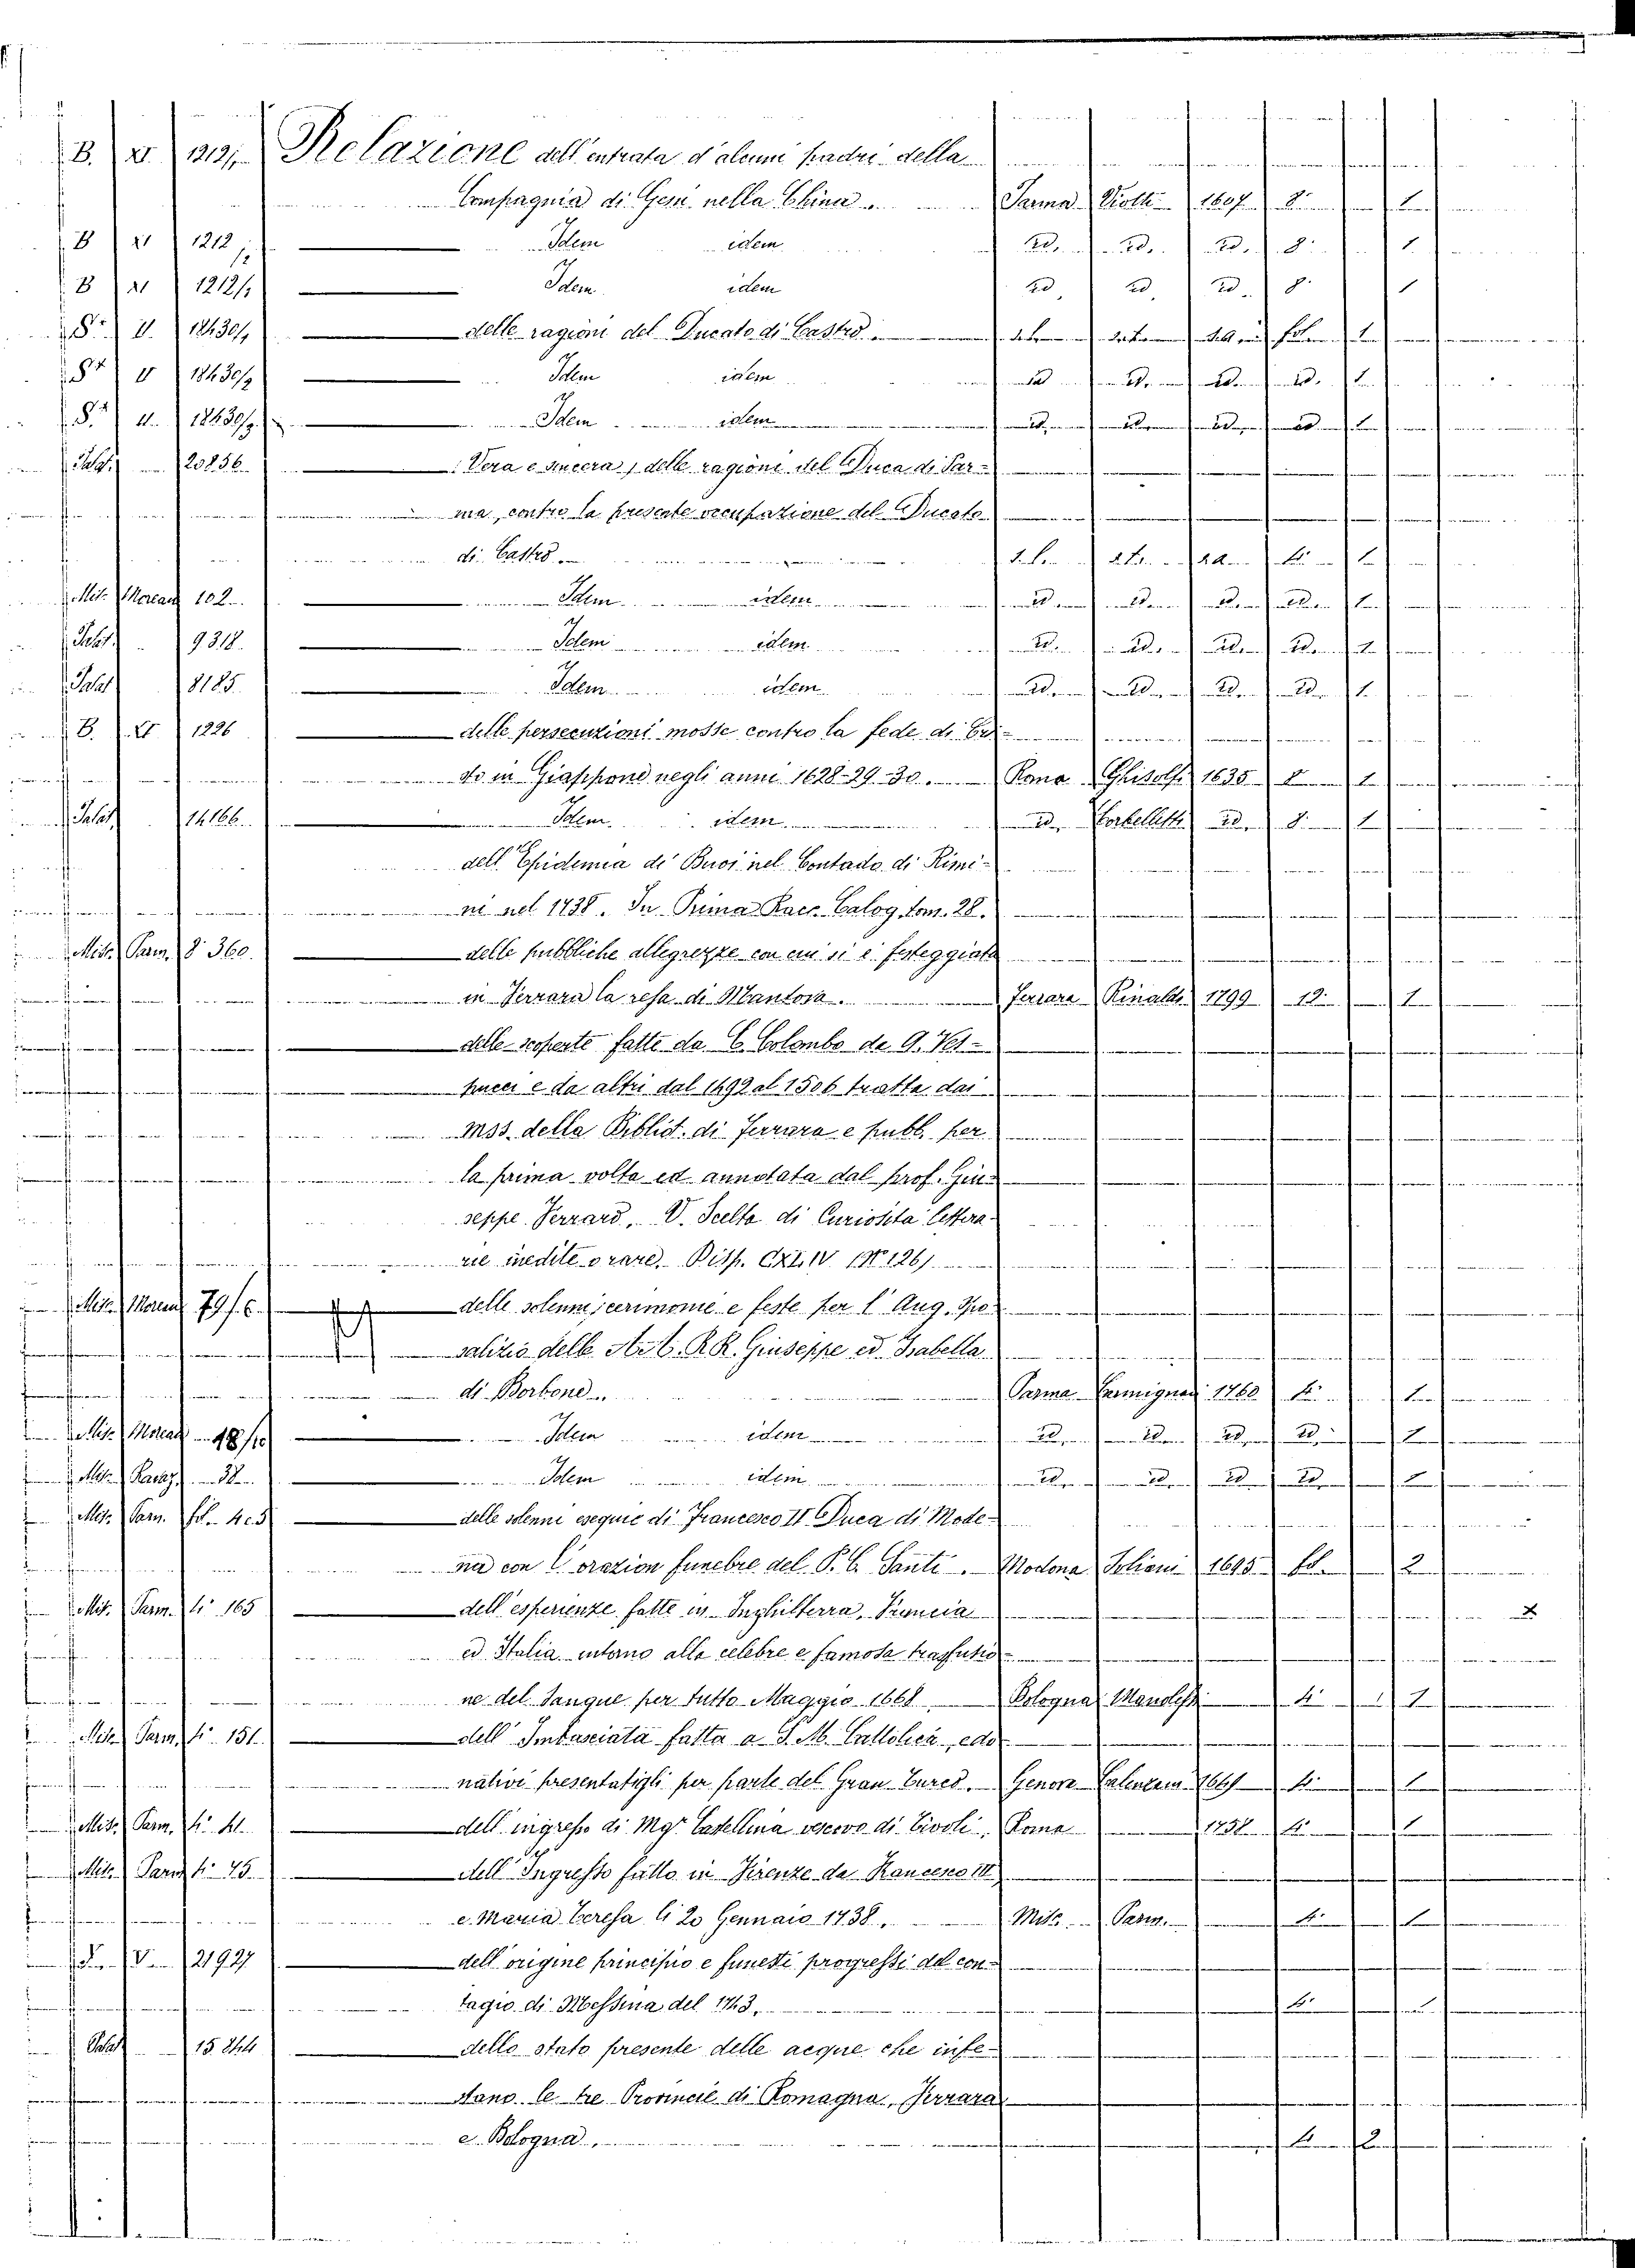 B. V 1212/1 Relazione dell'entrata d'alcuni padri della
Compagnia di Gesù nella China. Parma Viotti 1607 8. 1
B V 1212/2 Idem idem id. id. id. 8. 1
B V 1212/3 Idem idem id. id. id. 8. 1
S. V. 18430/1 delle ragioni del Ducato di Castro. fol. 1
S. V 18430/2 Idem idem id id. id. id. 1
S. V. 18430/3 Idem idem id. id id. id 1
Palat. 20856. (Vera e sincera) delle ragioni del Duca di Par-
ma, contro la presente occupatione del Ducato
di Castro. s. l. s. t. s. a. 4. 1
Misc. Moreau 102. Idem idem id id. id. id. 1
Palat. 9318. Idem idem id. id. id. id. 1
Palat 8185. Idem idem id. id. id. id. 1
B. V 1226 delle persecutioni mosse contro la fede di Cri-
sto in Giappone negli anni 1628-29-30. Roma Ghisolfi 1635 8 1
Palat 14166. Idem idem id. Corbelletti id. 8. 1
dell'Epidemia de' Buoi nel Contado di Rimi-
ni nel 1738. In Prima Racc. Calog. tom. 28.
Misc. Parm. 8.° 360. delle pubbliche allegrezze con cui si è festeggiata
in Ferrara la resa di Mantova. Ferrara Rinaldi 1799 12. 1
delle scoperte fatte da C. Colombo da A. Ves-
pucci e da altri dal 1492 al 1506 tratta dai
mss. della Bibliot. di Ferrara e pubb. per
la prima volta ed annotata dal prof. Giu-
seppe Ferraro. V. Scelta di Curiosità lettera-
rie inedite o rare. Disp. CXLIV (N.° 126)
Misc. Moreau 79/6. delle solenni cerimonie e feste per l'Aug. Spo-
salizio delle AA. RR. Giuseppe ed Isabella
di Borbone. Parma Carmignani 1760 4. 1
Misc. Moreau 48/10 Idem idem id. id. id. id. 1
Misc. Ravaz. 38. Idem idem id. id. id id. 1
Misc. Parm. fol. 405 delle solenni esequie di Francesco II Duca di Mode-
na con l'orazion funebre del P. C. Santi. Modona Soliani 1695 fol. 2
Misc. Parm. 4.° 165 dell'esperienze fatte in Inghilterra, Francia
ed Italia intorno alla celebre e famosa trasfusio-
ne del Sangue per tutto Maggio 1668. Bologna Manolessi 4. 1
Misc. Parm. 4.° 151. dell'Imbasciata fatta a S. M. Cattolica, e do-
nativi presentatigli per parte del Gran Turco. Genova Calenzani 4. 1
Misc. Parm. 4.° 41. dell'ingresso di Mgr. Castellina vescovo di Tivoli. Roma 4. 1
Misc. Parm 4.° 75. dell'Ingresso fatto in Firenze da Francesco III
e Maria Teresa li 20 Gennaio 1738. Misc. Parm. 4. 1
V. 21927 dell'origine principio e funesti progressi del con-
tagio di Messina del 1743. 4.
Palat 15 dello stato presente delle acque che infe-
stano le tre Provincie di Romagna, Ferrara
e Bologna. 4. 2